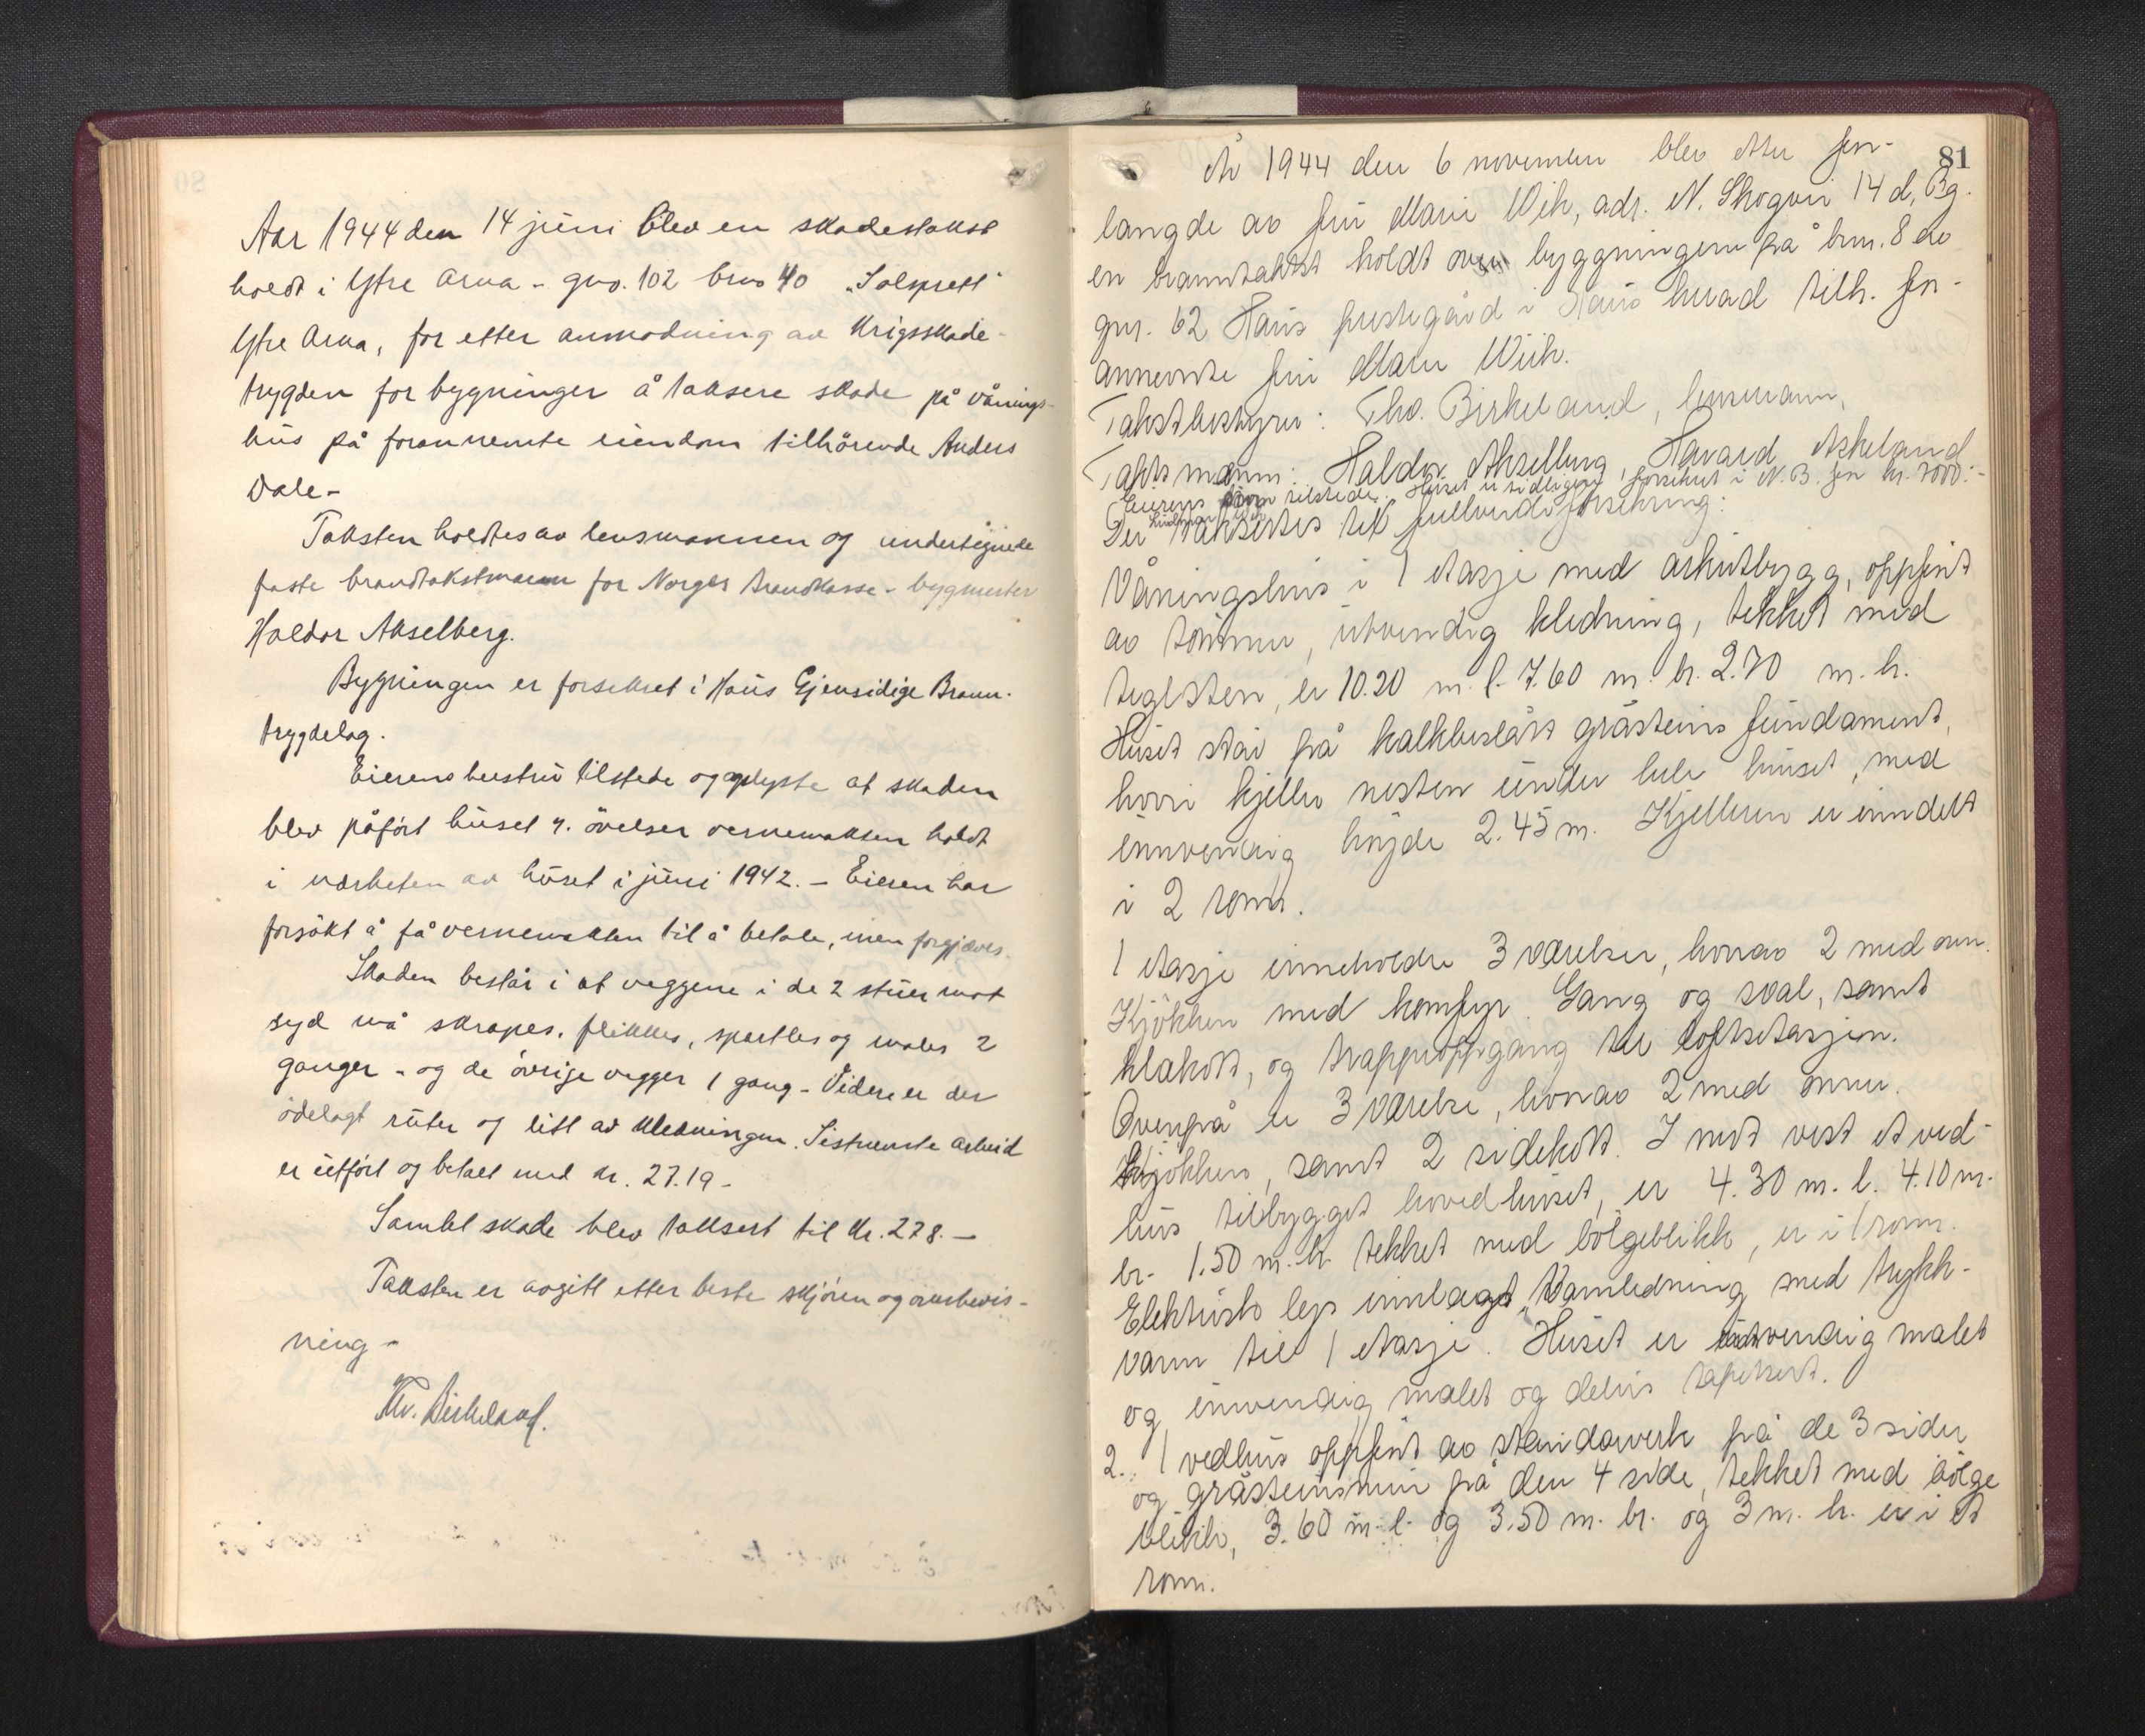 Aar 1944 den 14 juni blev en skadestakst
holdt i Ytre Arna - gno. 102 bno 40 "Solsprett"
Ytre Arna, for etter anmodning av Krigsskade-
trygden for bygninger å taksere skade på vånings-
hus på forannemte eiendom tilhörende Anders
Dale -
Taksten holdtes av lensmannen og undertegnede
faste brandtakstmann for Norges Brandkasse - bygmester
Haldor Akselberg.
Bygningen er forsikret i Haus Gjensidige Brann-
trygdelag.
Eierens hustru tilstede og oplyste at skaden
blev påfört huset v. övelser vernemakten holdt
i nærheten av huset i juni 1942. - Eieren har
forsökt å få vernemakten til å betale, men forgjæves.
Skaden består i at veggene i de 2 stuer mot
syd må skrapes, flikkes, sparkles og males 2
ganger - og de övrige vegger 1 gang - Videre er der
ödelagt ruter og litt av kledningen. Sistnemte arbeid
er utfört og betalt med kr. 27.19 -
Samlet skade blev taksert til kr. 278. -
Taksten er avgitt etter beste skjönn og overbevis-
ning -
Thv. Birkeland.
81
År 1944 den 6 november blev etter for-
langde av fru Marie Wiik, adr. N. Skogvei 14 d, Bg.
en branntakst holdt over byggningene på bnr. 8 av
gnr. 62 Haus prestegård i Haus herad tilh. for-
annevnte fru Marie Wiik.
Takstbestyrer: Tho. Birkeland, lensmann,
Takstmenn: Haldor Akselberg, Havard Askeland
Eierens tilstede. Huset er tidligere forsikret i N. B. for kr. 7000:-
Der taksertes til fullverdiforsikring:
Våningshus i 1 etasje med arkutbygg, oppfört
av tömmer, utvendig kledning, tekket med
teglsten, er 10.20 m. l. 7.60 m. br. 2.70 m. h.
Huset står på kalkbeslått gråsteins fundament,
hvori kjeller nesten under hele huset, med
innvendig höyde 2.45 m. Kjelleren er inndelt
i 2 rom.
1 etasje inneholder 3 værelser, hvorav 2 med ovn.
Kjökken med komfyr. Gang og sval, samt
klakott, og trappeoppgang til loftsetasjen.
Ovenpå er 3 værelse, hvorav 2 med ovner.
Kjökken, samt 2 sidekott. I mot vest et ved-
hus tilbygget hovedhuset, er 4.30 m. l. 4.10 m.
br. 1.50 m. h. tekket med bölgeblikk, er i 1 rom.
Elektrisk lys innlagt, Vannledning med trykk-
vann til 1 etasje. Huset er utvendig malet
og innvendig malet og delvis tapetsert.
2. 1 vedhus oppfört av standarverk på de 3 sider
og gråsteinsmur på den 4 side, tekket med bölge
blikk, 3.60 m. l. og 3.50 m. br. og 3 m. h. er i et
rom.